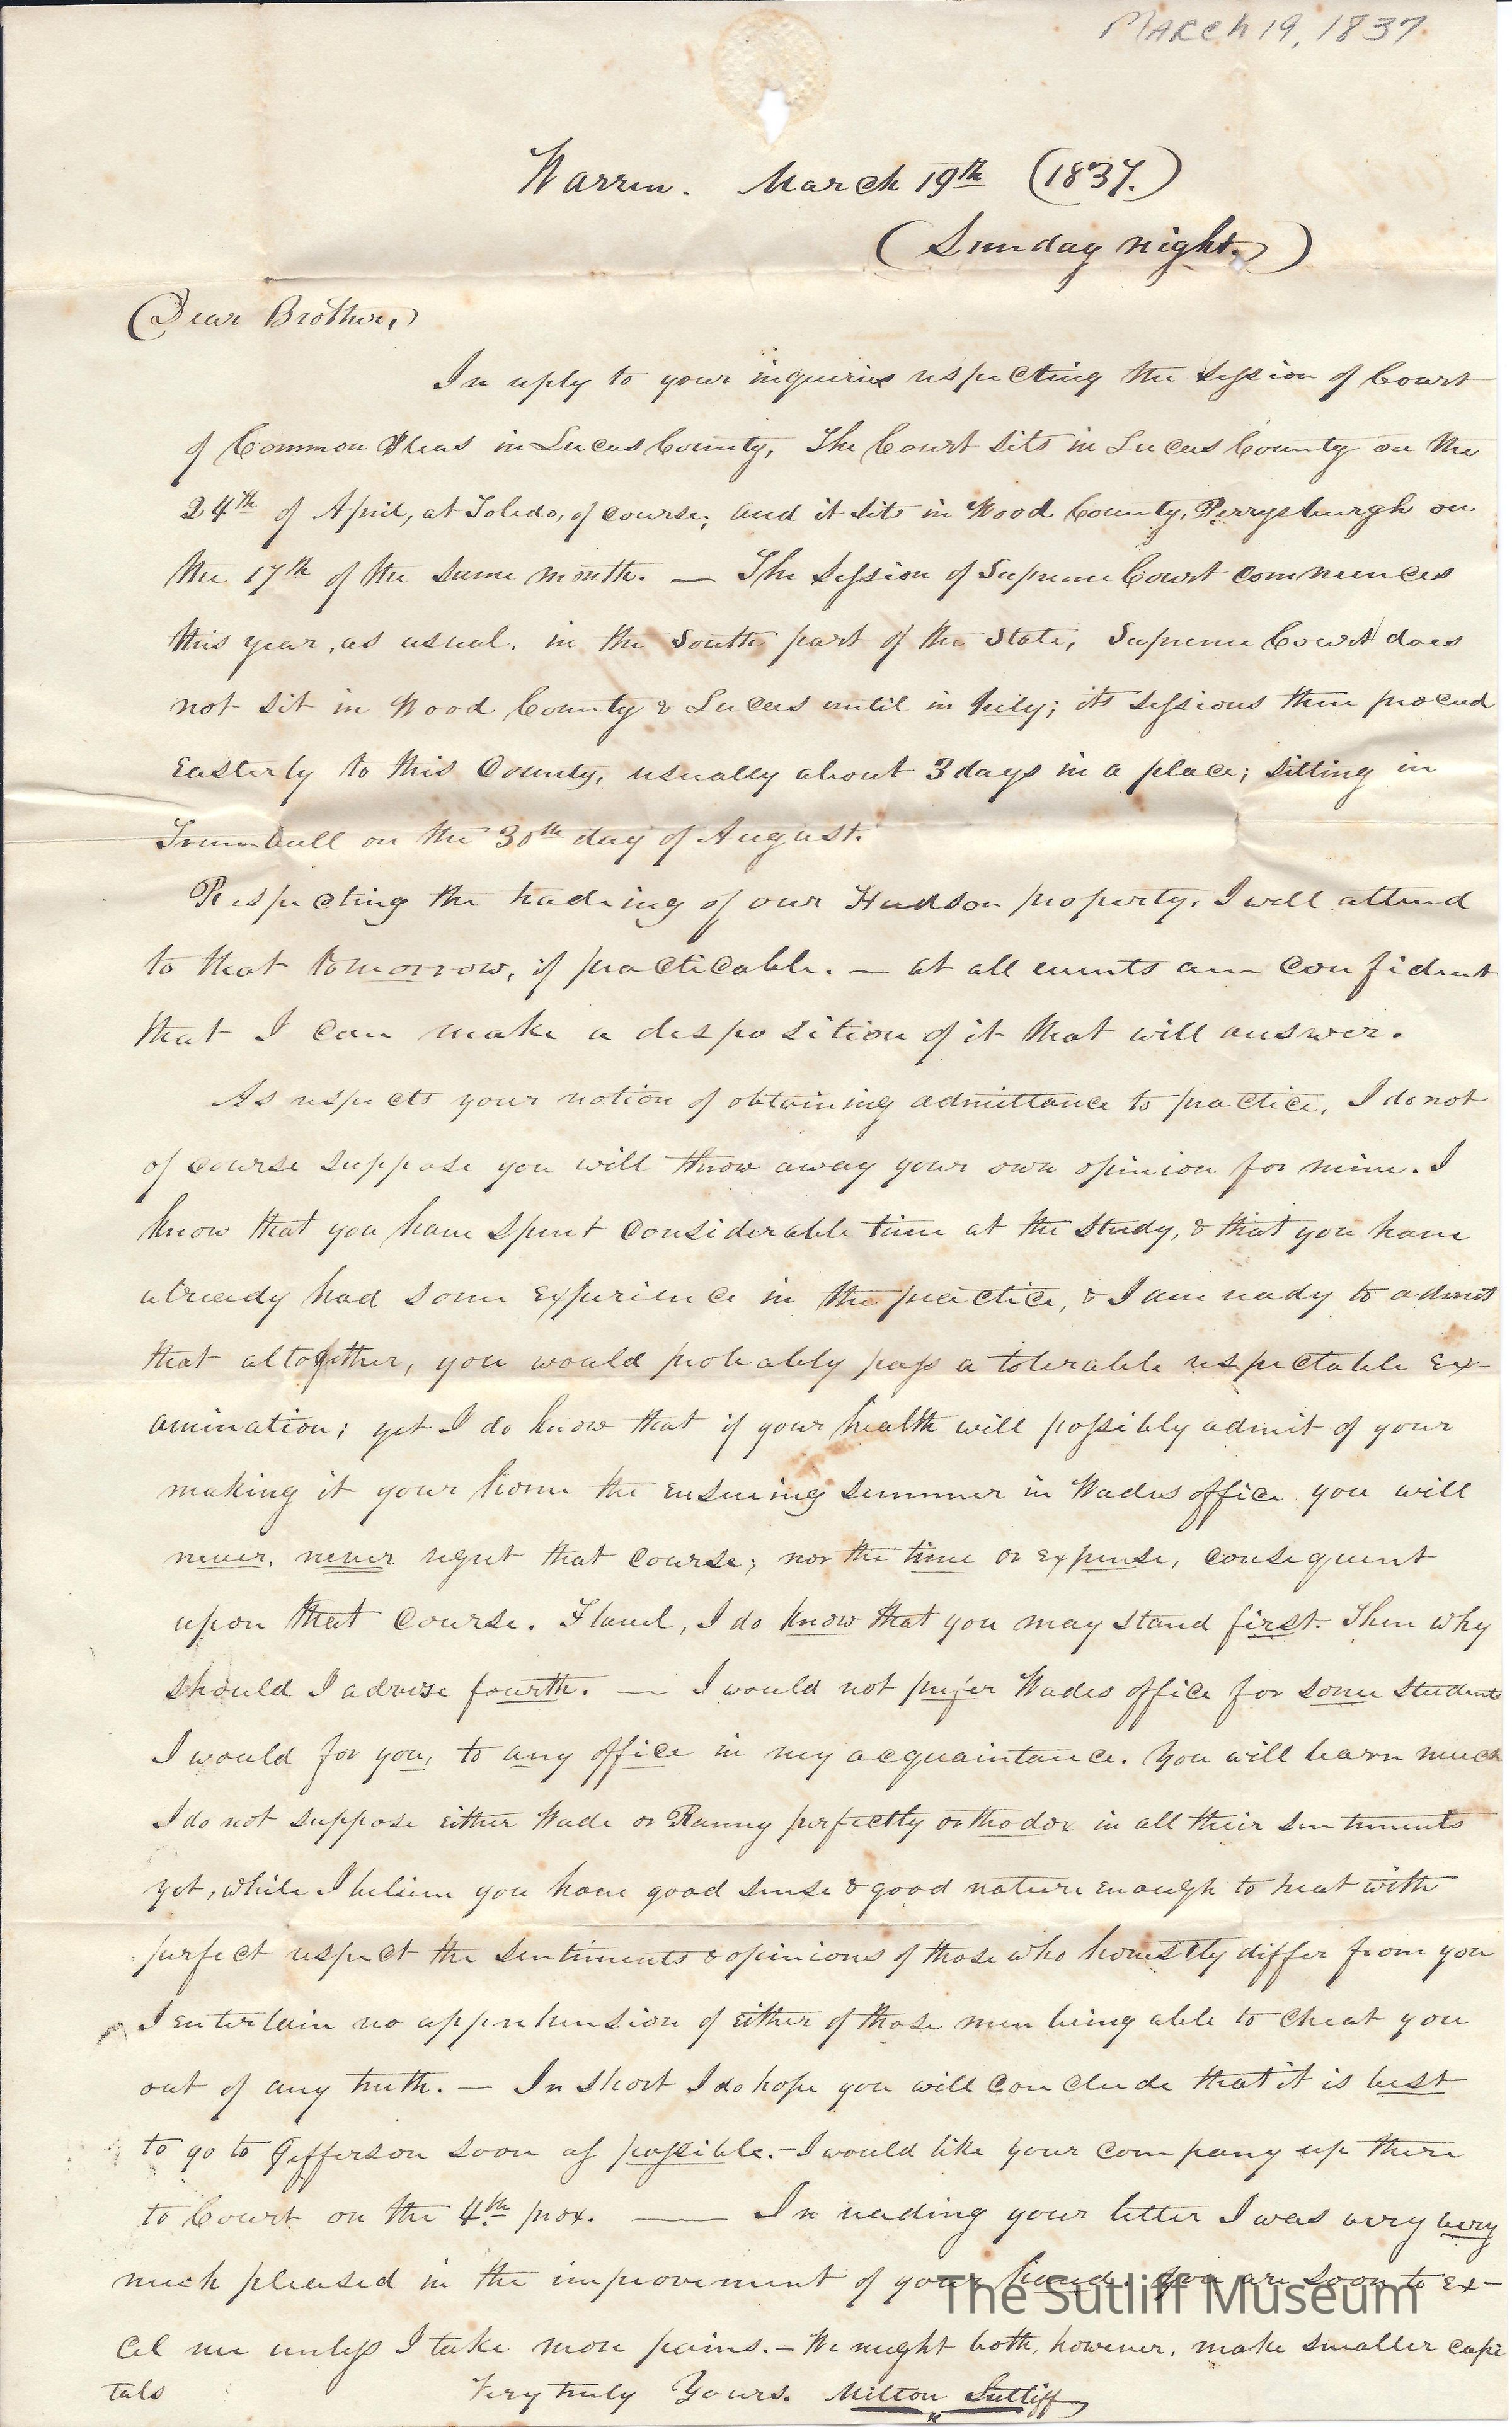 MARCH 19, 1837
Warren. March 19th (1837.)
(Sunday night.)
(Dear Brother,)
In reply to your inquiries respecting the session of Court
of Common Pleas in Lucas County, The Court sits in Lucas County on the
24th of April, at Toledo, of course; and it sits in Wood County, Perrysburgh on
the 17th of the same month. — The session of Supreme Court commences
this year, as usual, in the South part of the State, Supreme Court does
not sit in Wood County & Lucas until in July; its sessions then proceed
Easterly to this County, usually about 3 days in a place; sitting in
Trumbull on the 30th day of August.
Respecting the trading of our Hudson property, I will attend
to that tomorrow, if practicable. — at all events am confident
that I can make a desposition of it that will answer.
As respects your notion of obtaining admittance to practice, I do not
of course suppose you will throw away your own opinion for mine. I
know that you have spent considerable time at the study, & that you have
already had some experience in the practice, & I am ready to admit
that altogether, you would probably pass a tolerable respectable ex-
amination; yet I do know that if your health will possibly admit of your
making it your home the ensueing summer in Wades office you will
never, never regret that course; nor the time or expense, consequent
upon that course. Flavel, I do know that you may stand first. Then why
should I advise fourth. — I would not prefer Wades office for some students
I would for you, to any office in my acquaintance. You will learn much
I do not suppose either Wade or Ranny perfectly orthodox in all their sentiments
yet, while I believe you have good sense & good nature enough to treat with
perfect respect the sentiments & opinions of those who honestly differ from you
I entertain no apprehension of either of those men being able to cheat you
out of any truth. — In short I do hope you will conclude that it is best
to go to Jefferson soon as possible. — I would like your company up there
to Court on the 4th prox. — In reading your letter I was very very
much pleased in the improvement of your hand. You are soon to ex-
cel me unless I take more pains. — We might both, however, make smaller capi
tals
Very truly Yours. Milton Sutliff
The Sutliff Museum